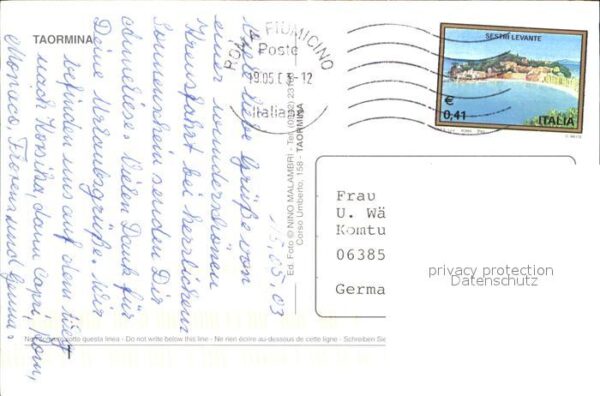 TAORMINA
Liebe Grüße von
einer wunderschönen
Kreuzfahrt bei herrlichem
Sonnenschein senden Dir
Vielen Dank für
Deine Urlaubsgrüße. Wir
befinden uns auf dem Weg
nach Korsika, dann Capri, Rom,
Monico, Florenz und
15.05.03
Ed. Foto © NINO MALAMBRI - Tel. (0942)
Corso Umberto, 158 - TAORMINA
ROMA FIUMICINO
Poste
19.05 -12
Italiane
SESTRI LEVANTE
€
0,41 ITALIA
Frau
U. Wä
Komtu
06385
Germa
privacy protection
Datenschutz
questa linea - Do not write below this line - Ne rien écrire au-dessous de cette ligne - Schreiben Sie